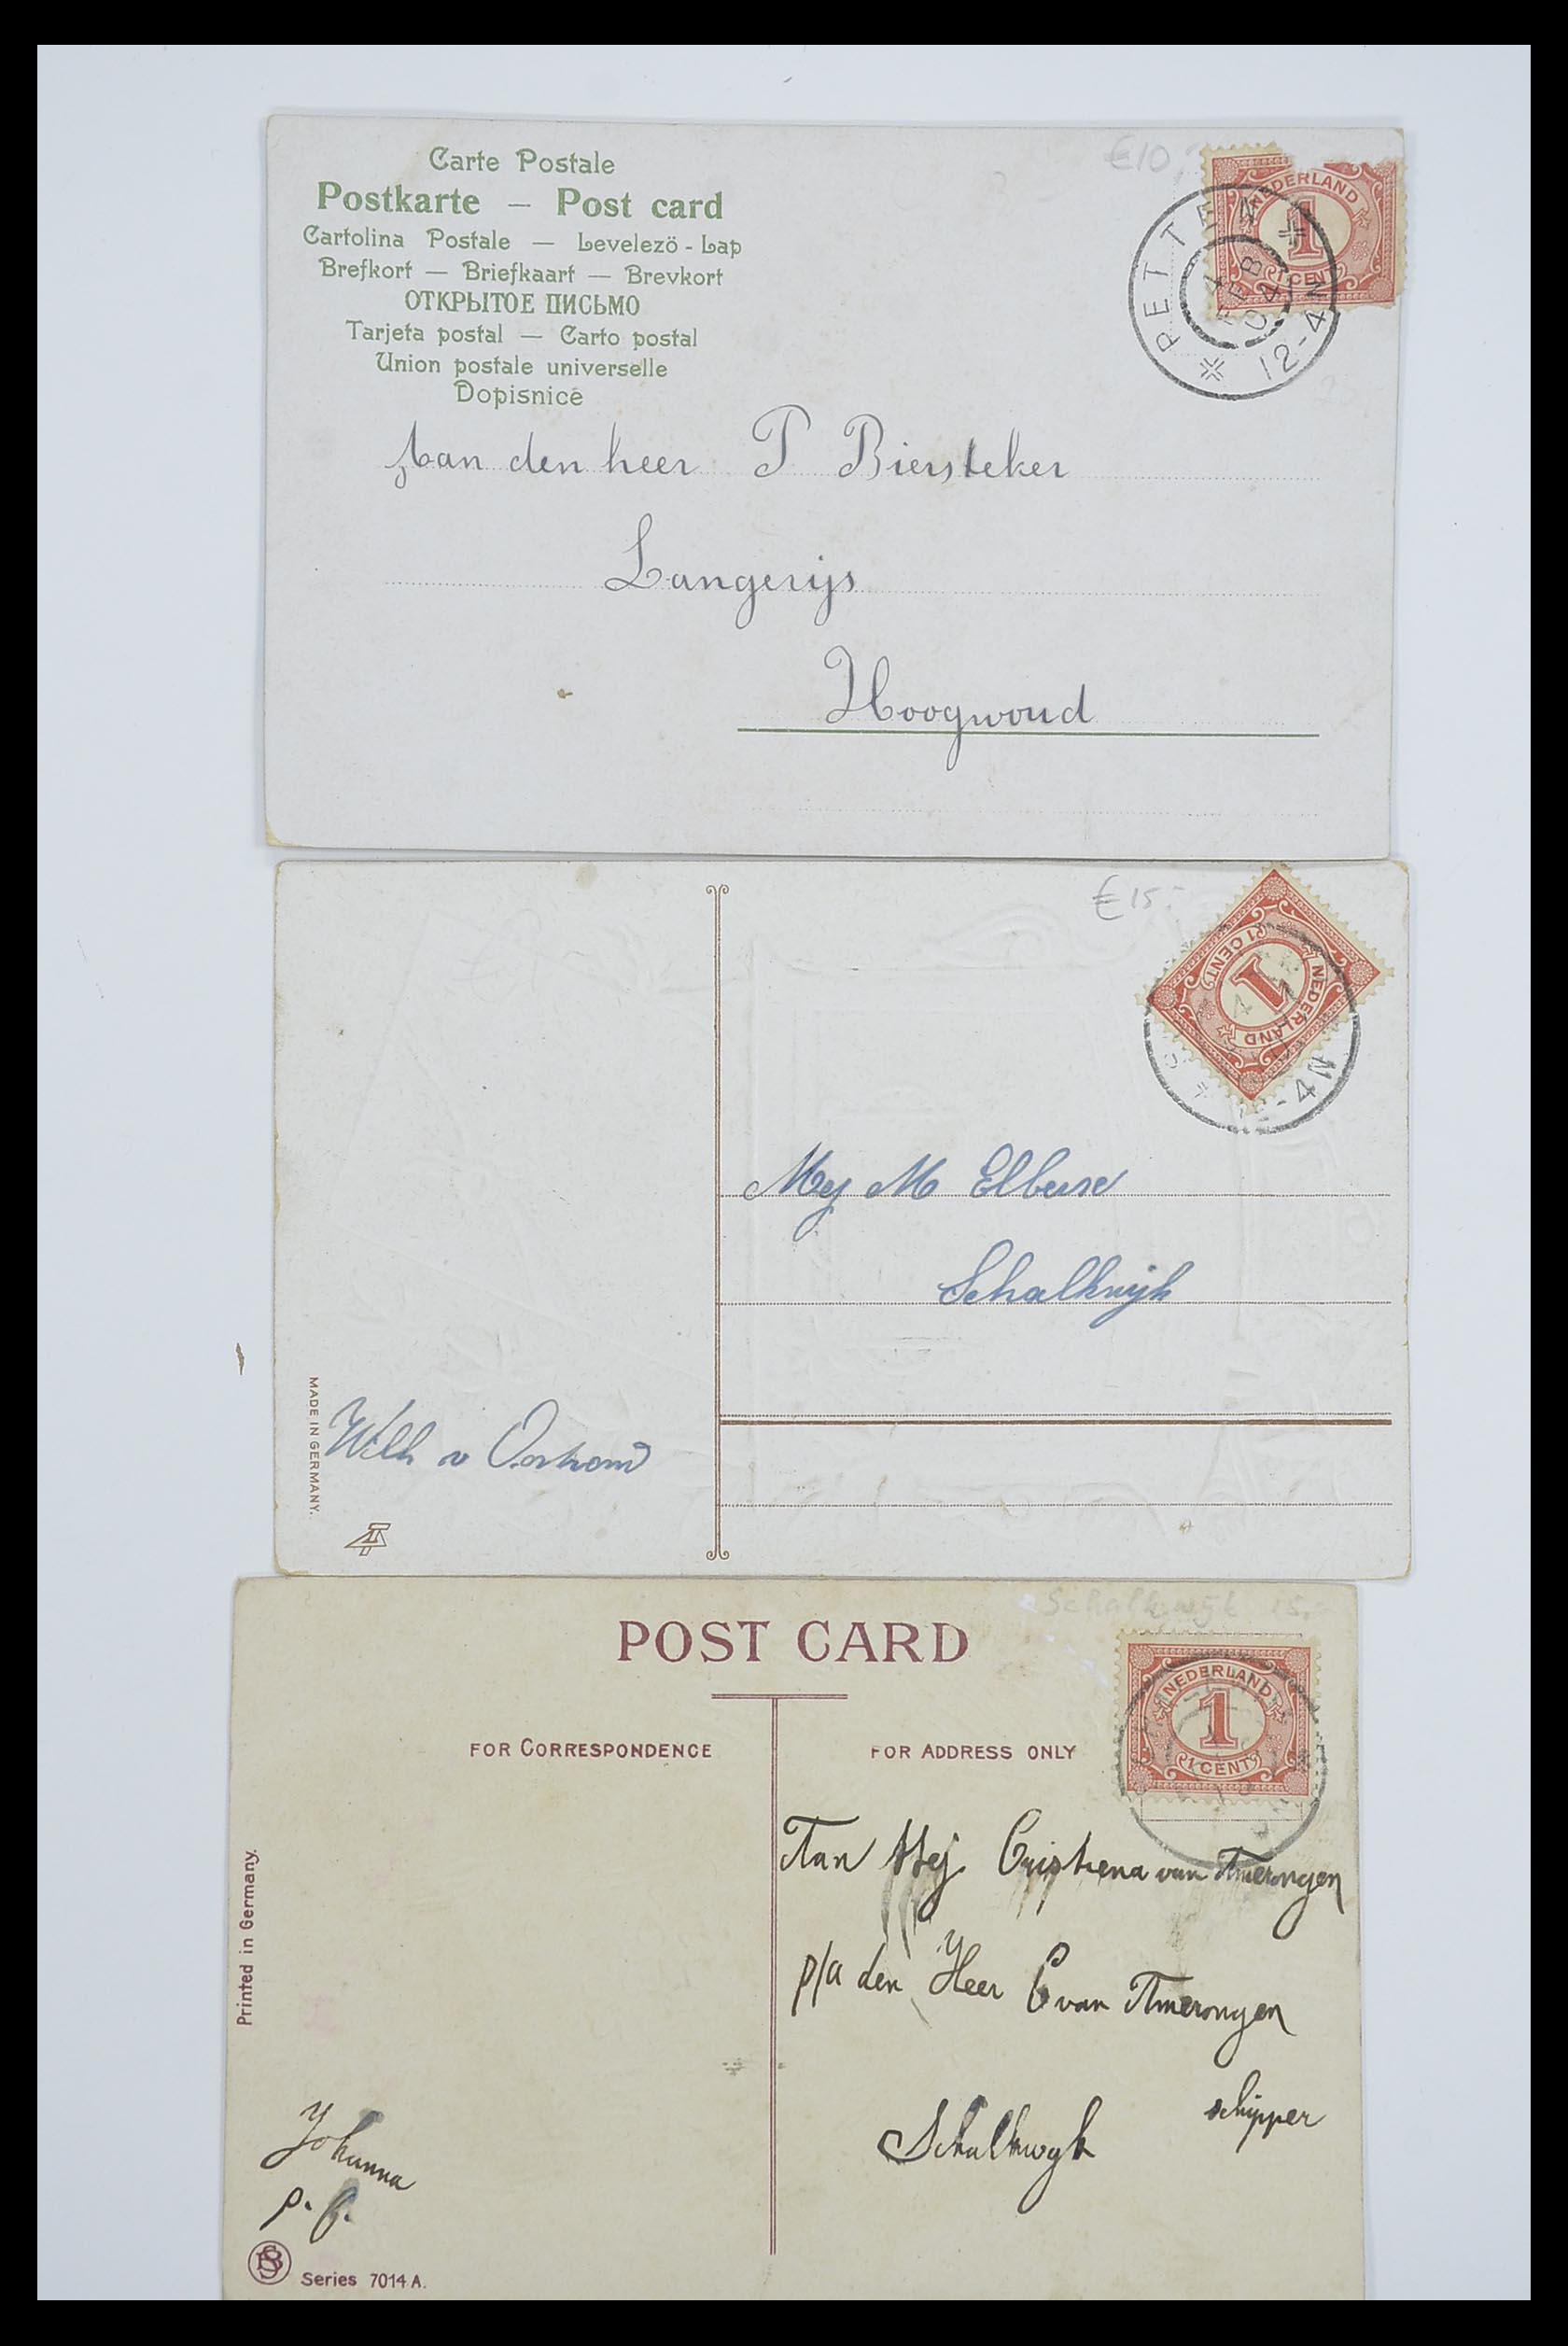 Carte Postale
Postkarte — Post card
Cartolina Postale — Levelezö - Lap
Brefkort — Briefkaart — Brevkort
ОТКРЫТОЕ ПИСЬМО
Tarjeta postal — Carto postal
Union postale universelle
Dopisnice
€10,-
NEDERLAND
1
1 CENT
PETTEN
4
FEB
04
12-4N
Aan den heer P Biersteker
Langerijs
Hoogwoud
€15.-
NEDERLAND
1
1 CENT
12-4N
Mej M Elberse
Schalkwijk
MADE IN GERMANY.
Wilh v Oostrom
Schalkwijk 15,-
POST CARD
NEDERLAND
1
1 CENT
FOR CORRESPONDENCE
FOR ADDRESS ONLY
Aan Mej. Cristiena van Amerongen
p/a den Heer C van Amerongen
schipper
Schalkwyk
Printed in Germany.
Johanna
p. f.
Series 7014 A.